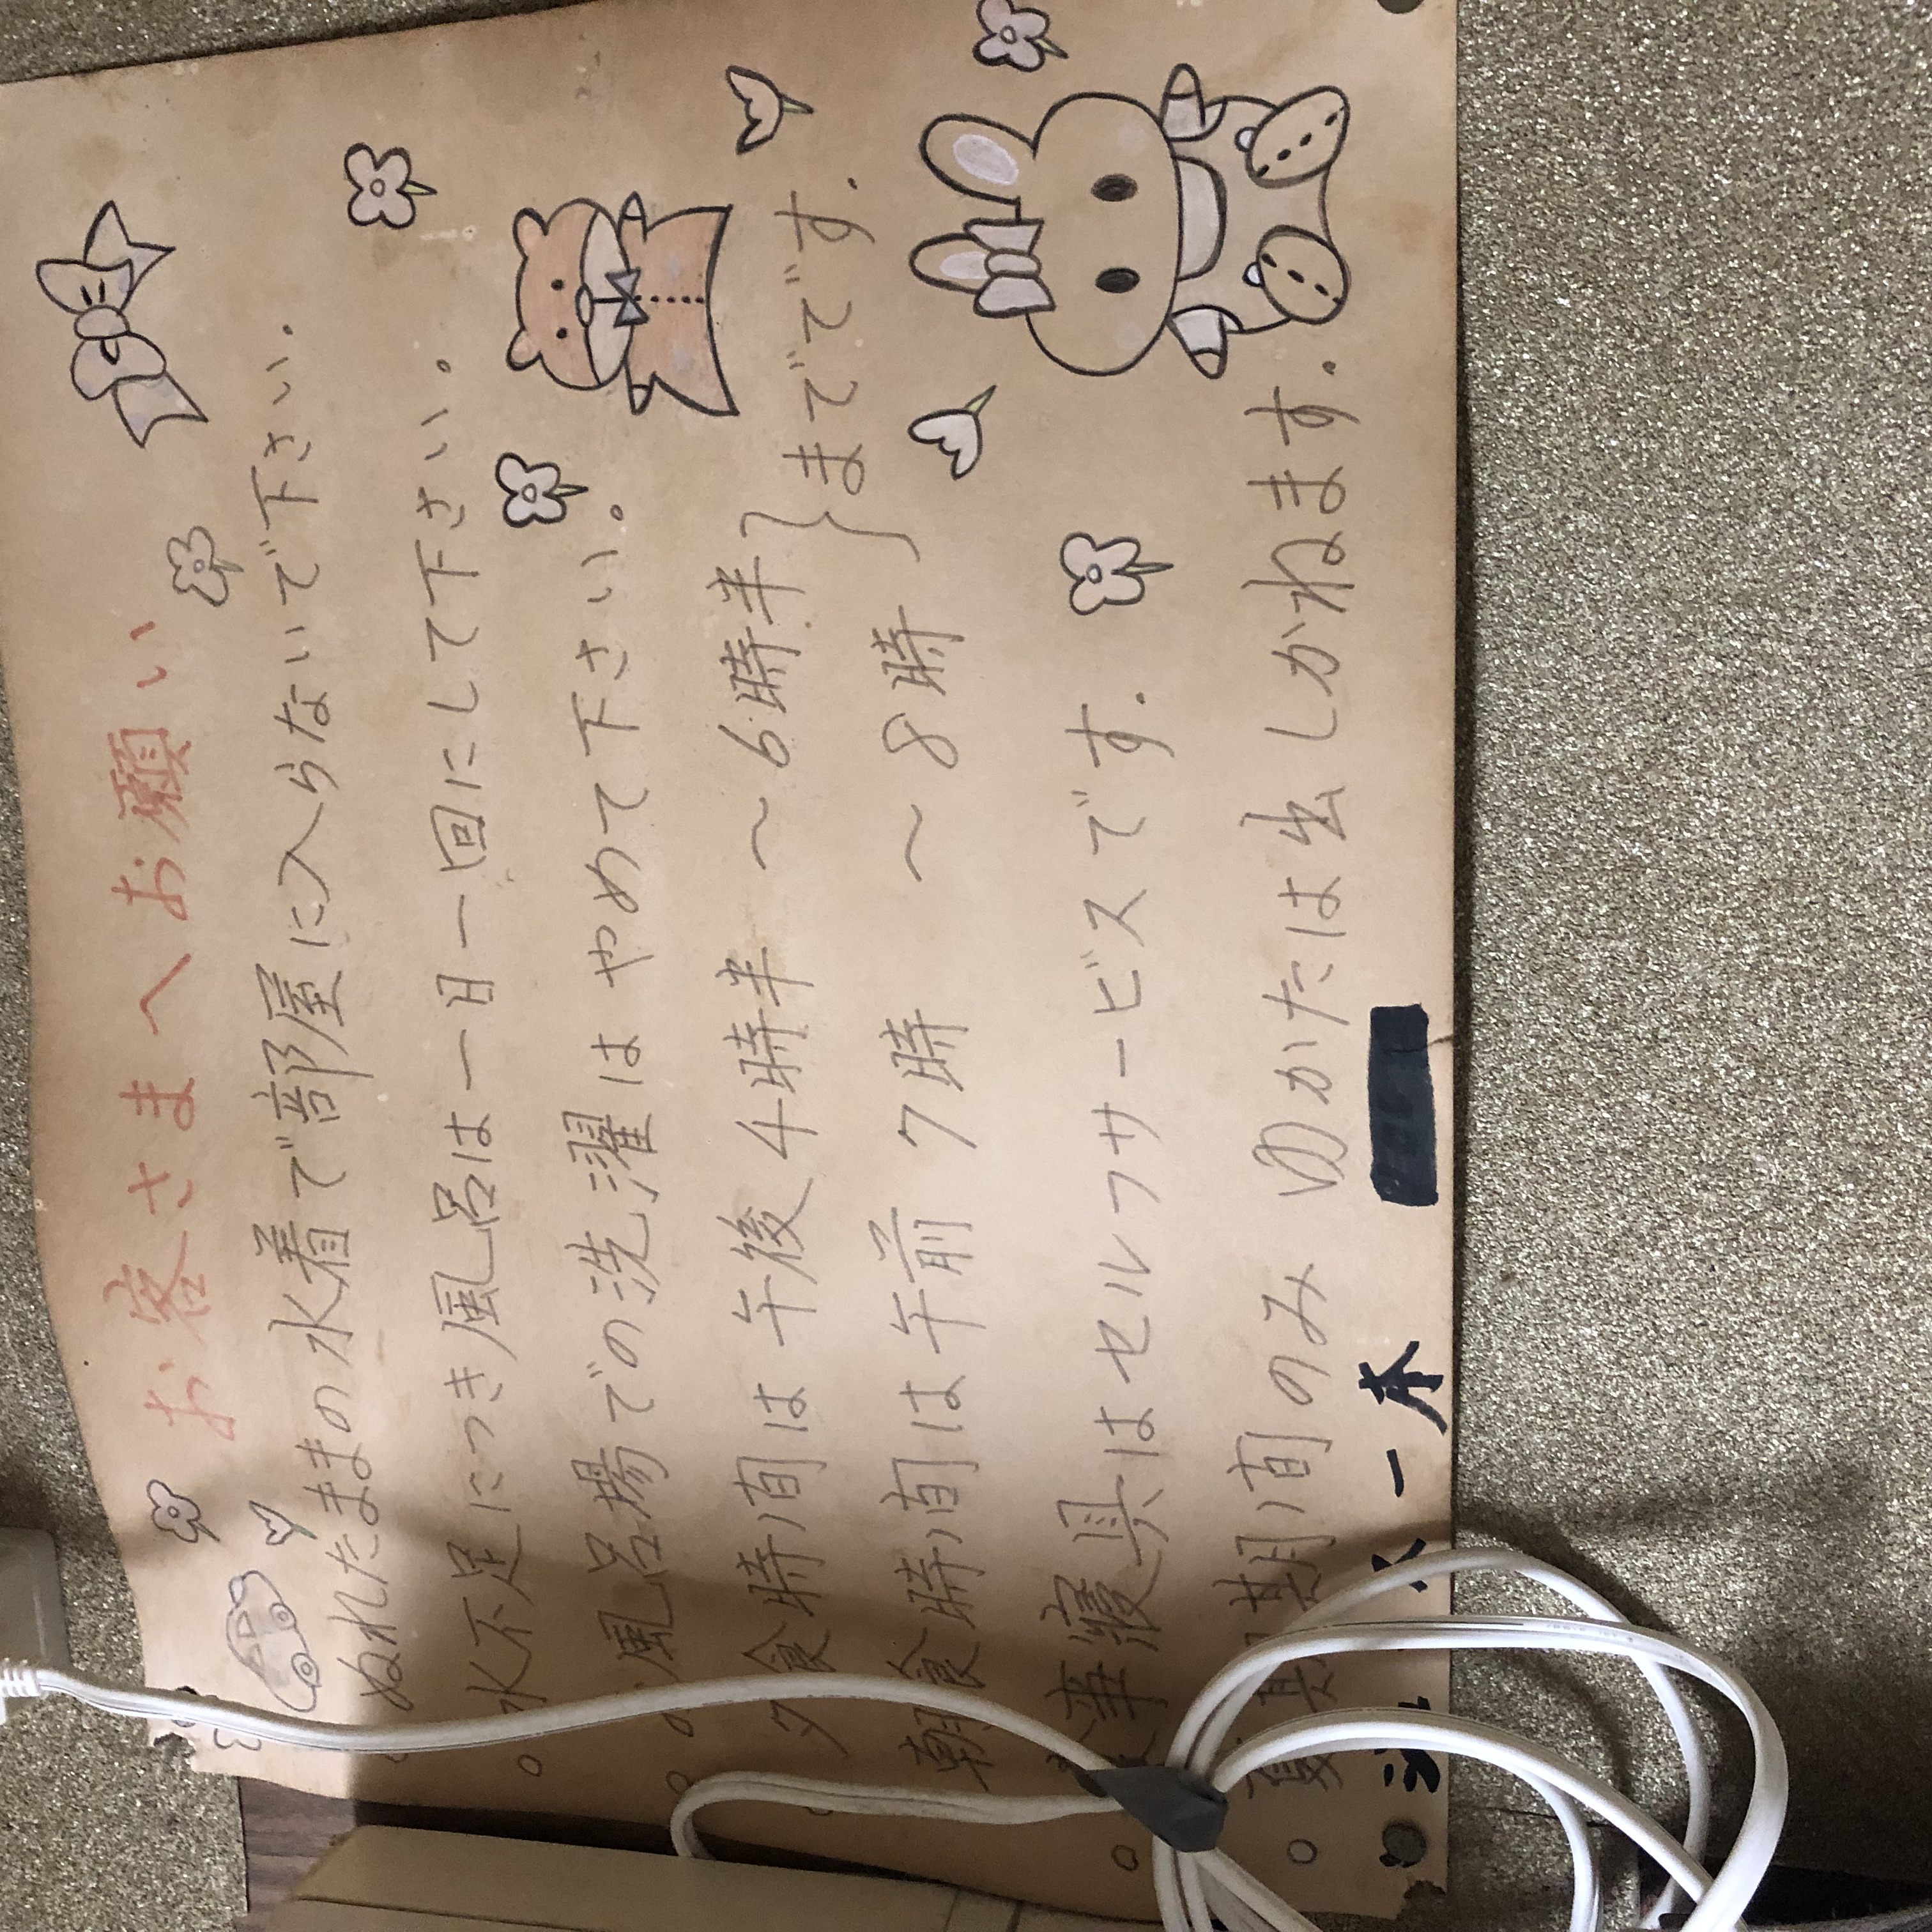 お客さまへお願い
ぬれたままの水着で部屋に入らないで下さい。
水不足につき風呂は一日一回にして下さい。
風呂場での洗濯はやめて下さい。
夕食時間は午後4時半～6時半
朝食時間は午前7時～8時
までです.
寝具はセルフサービスです.
期間のみゆかたは出しかねます.
一本